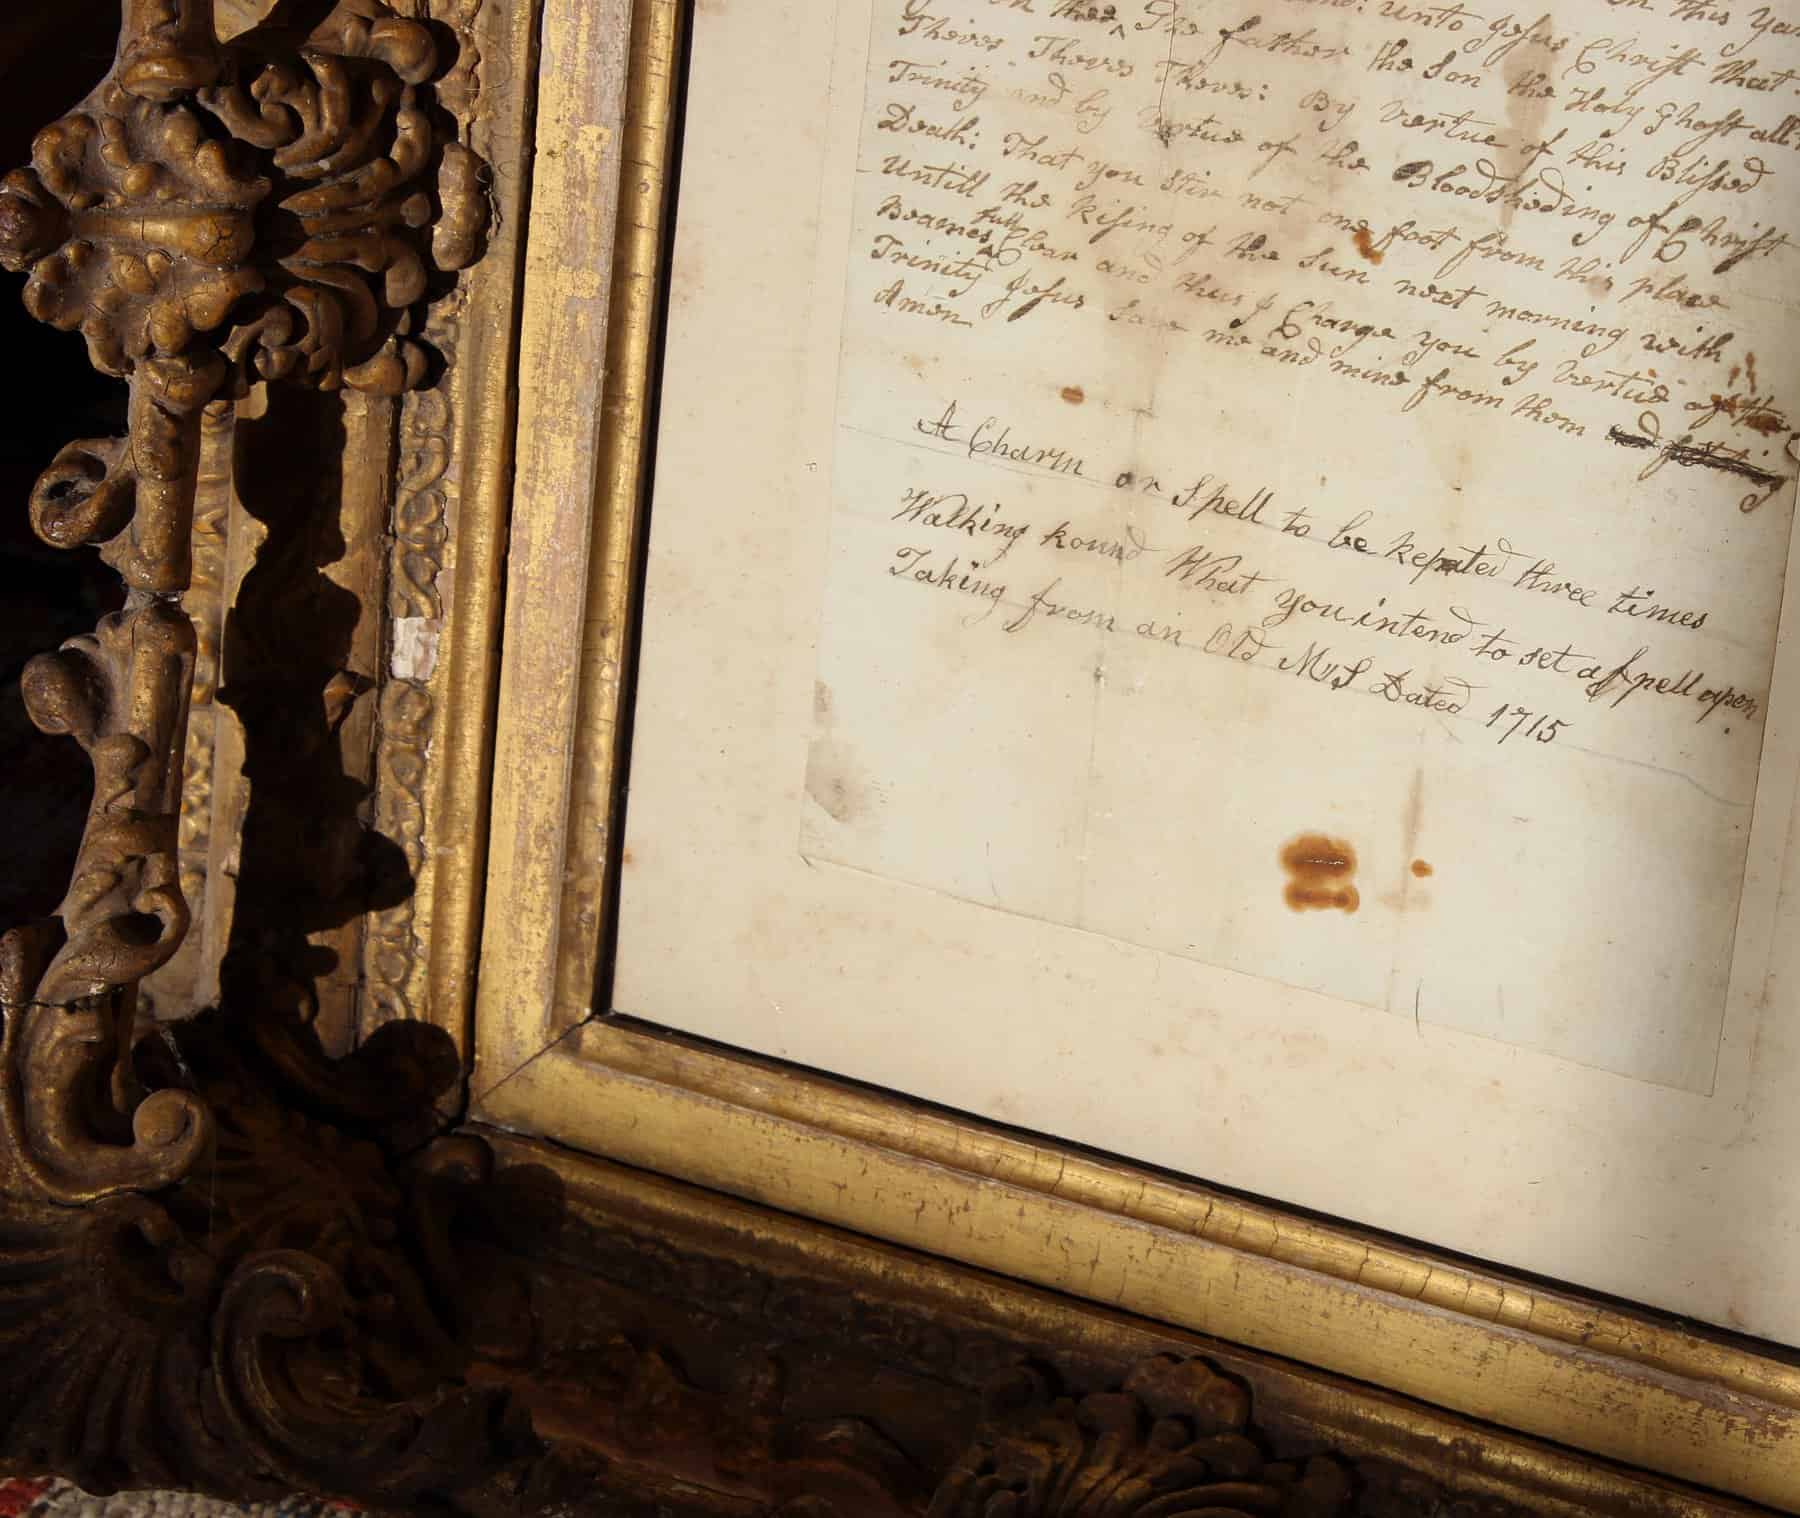 in this
thee ^ The father the Son the Holy Ghost all
unto Jesus Christ that
Theves Theves Theves: By vertue of this Blissed
Trinity and by vertue of the Bloodsheding of Christ
Death: That you stir not one foot from this place
Untill the Rising of the Sun next morning with
Beames full Clear and thus I Charge you by vertue of the
Trinity Jesus Save me and mine from them and
Amen
A Charm or Spell to be Repated three times
Walking Round What you intend to set a Spell apon
Taking from an Old M,,S Dated 1715